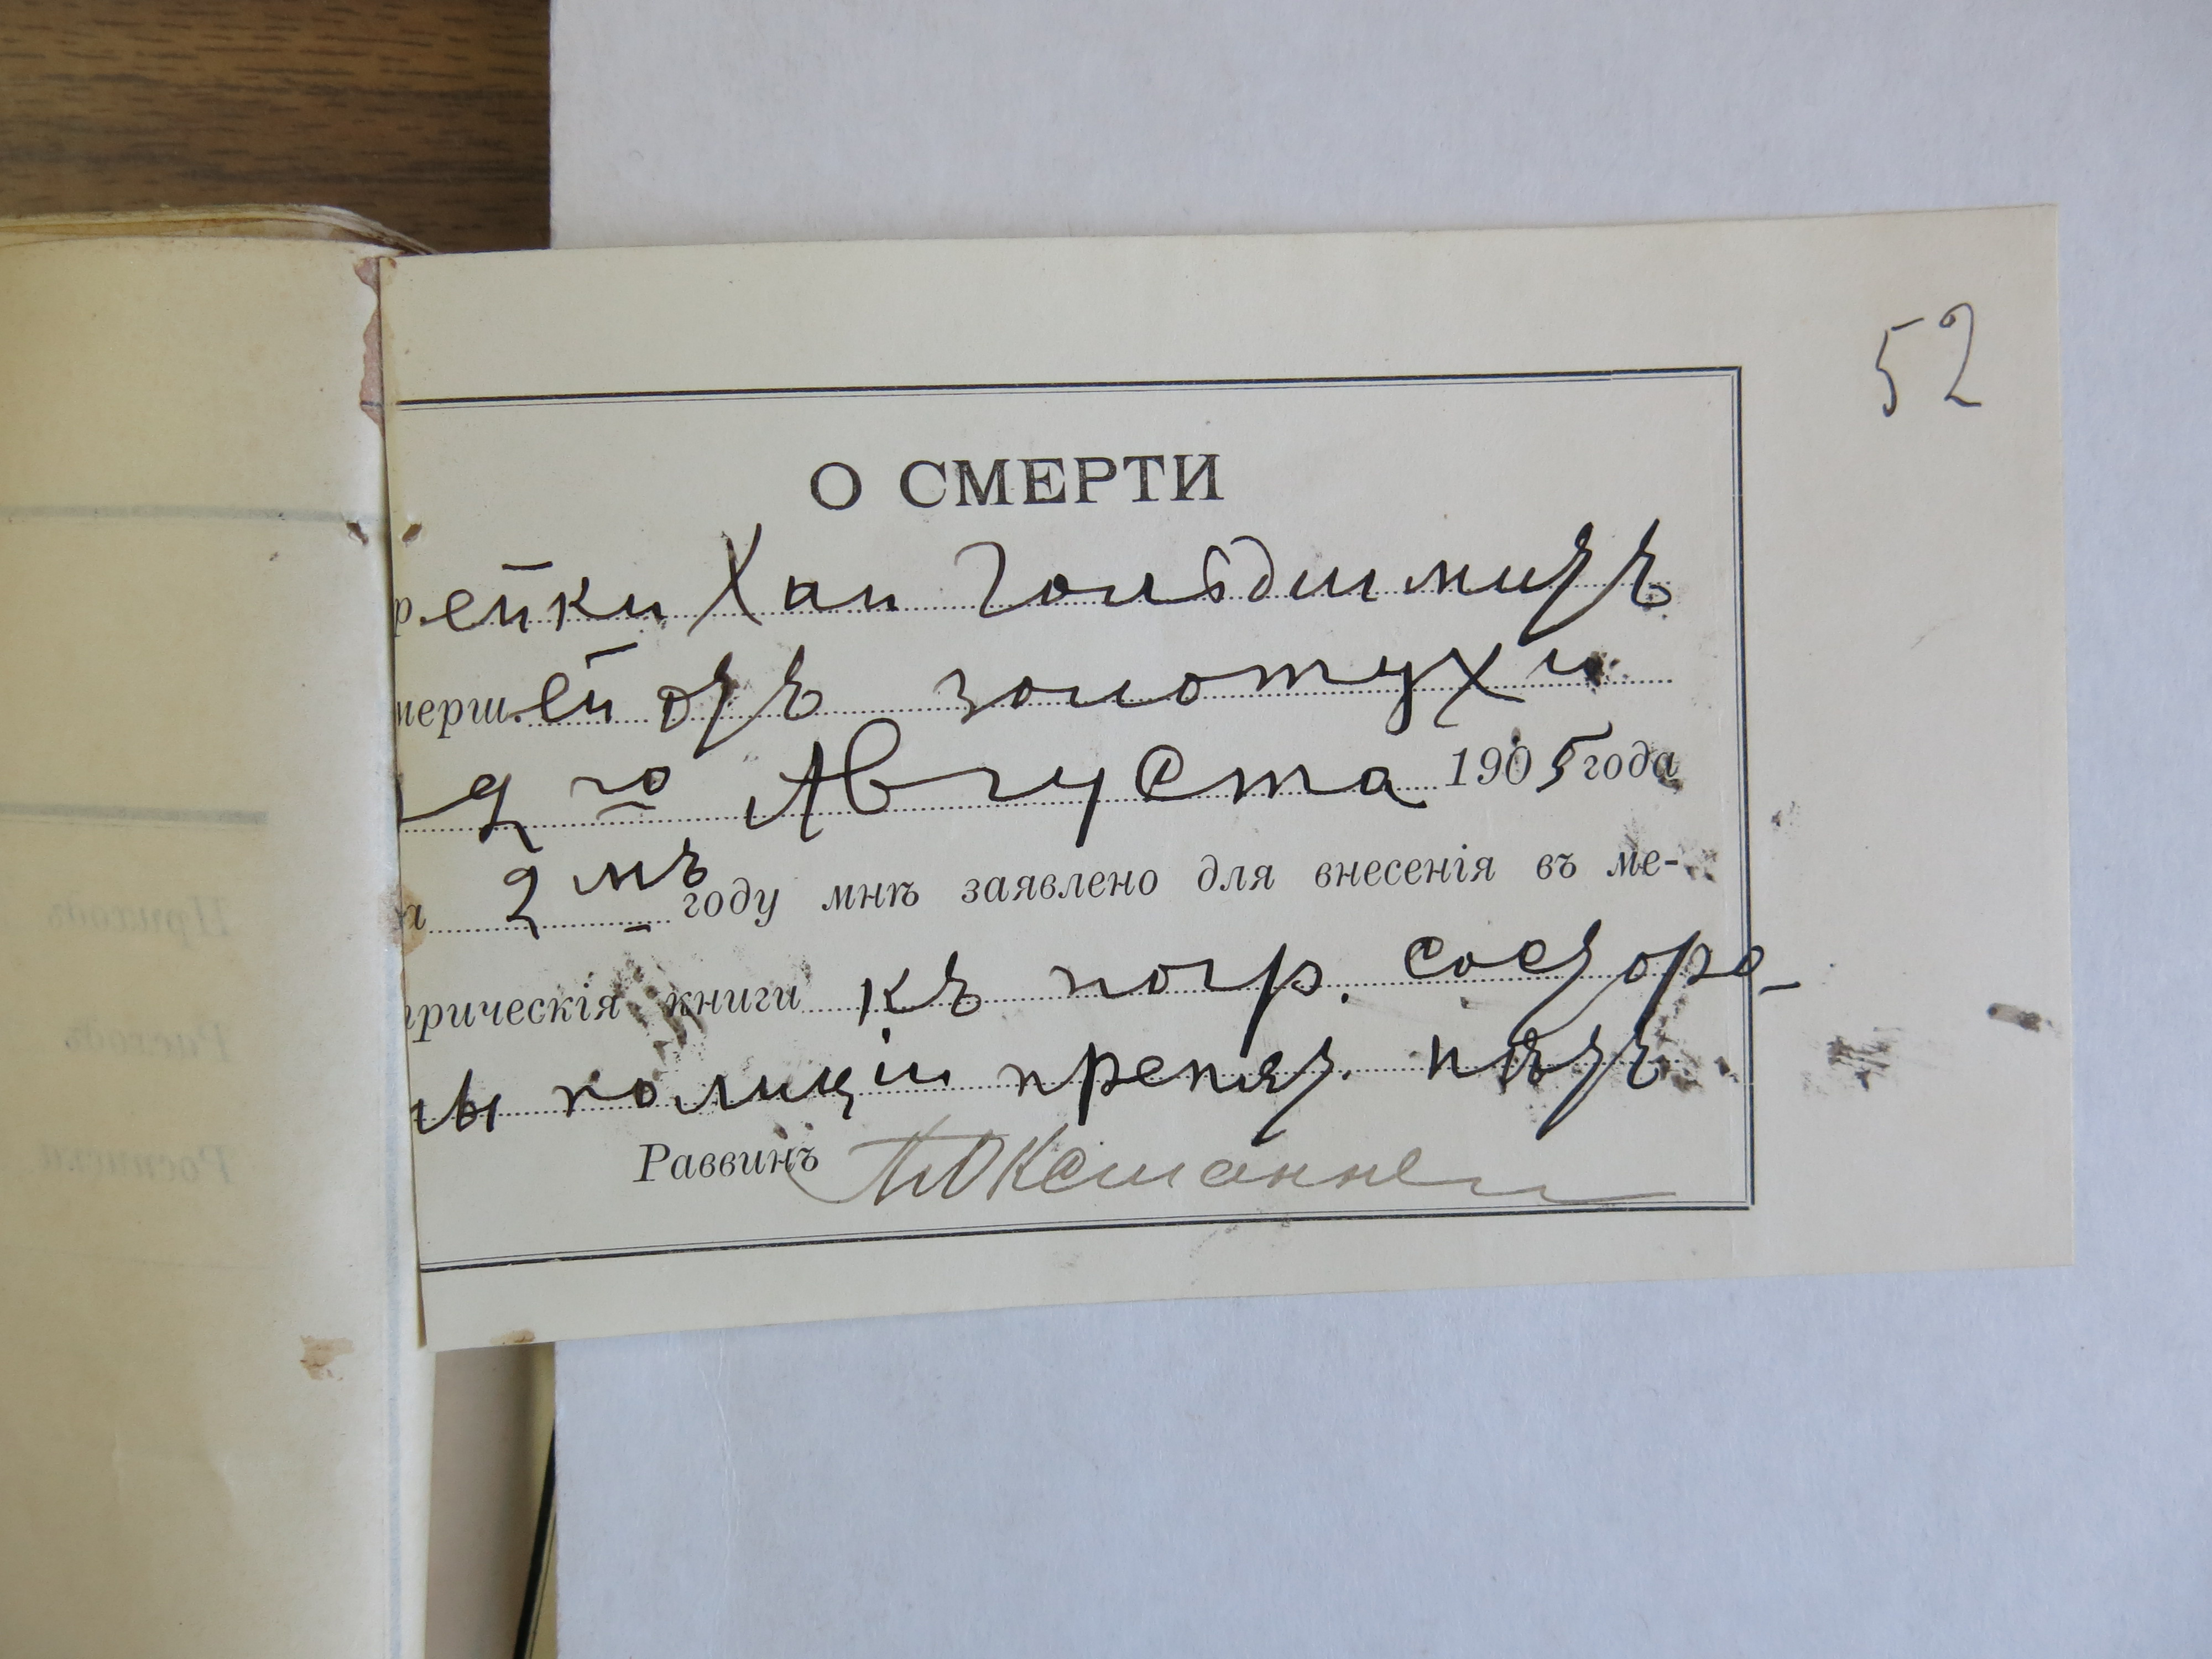 52
О СМЕРТИ
р.ейки Хаи Гольдшмидъ
мерш.ей отъ золотухи
го Августа 1905 года
2 мъ году мнѣ заявлено для внесенія въ ме-
трическія книги къ погр. со стор­о-
ны полиціи препят. нѣтъ
Раввинъ